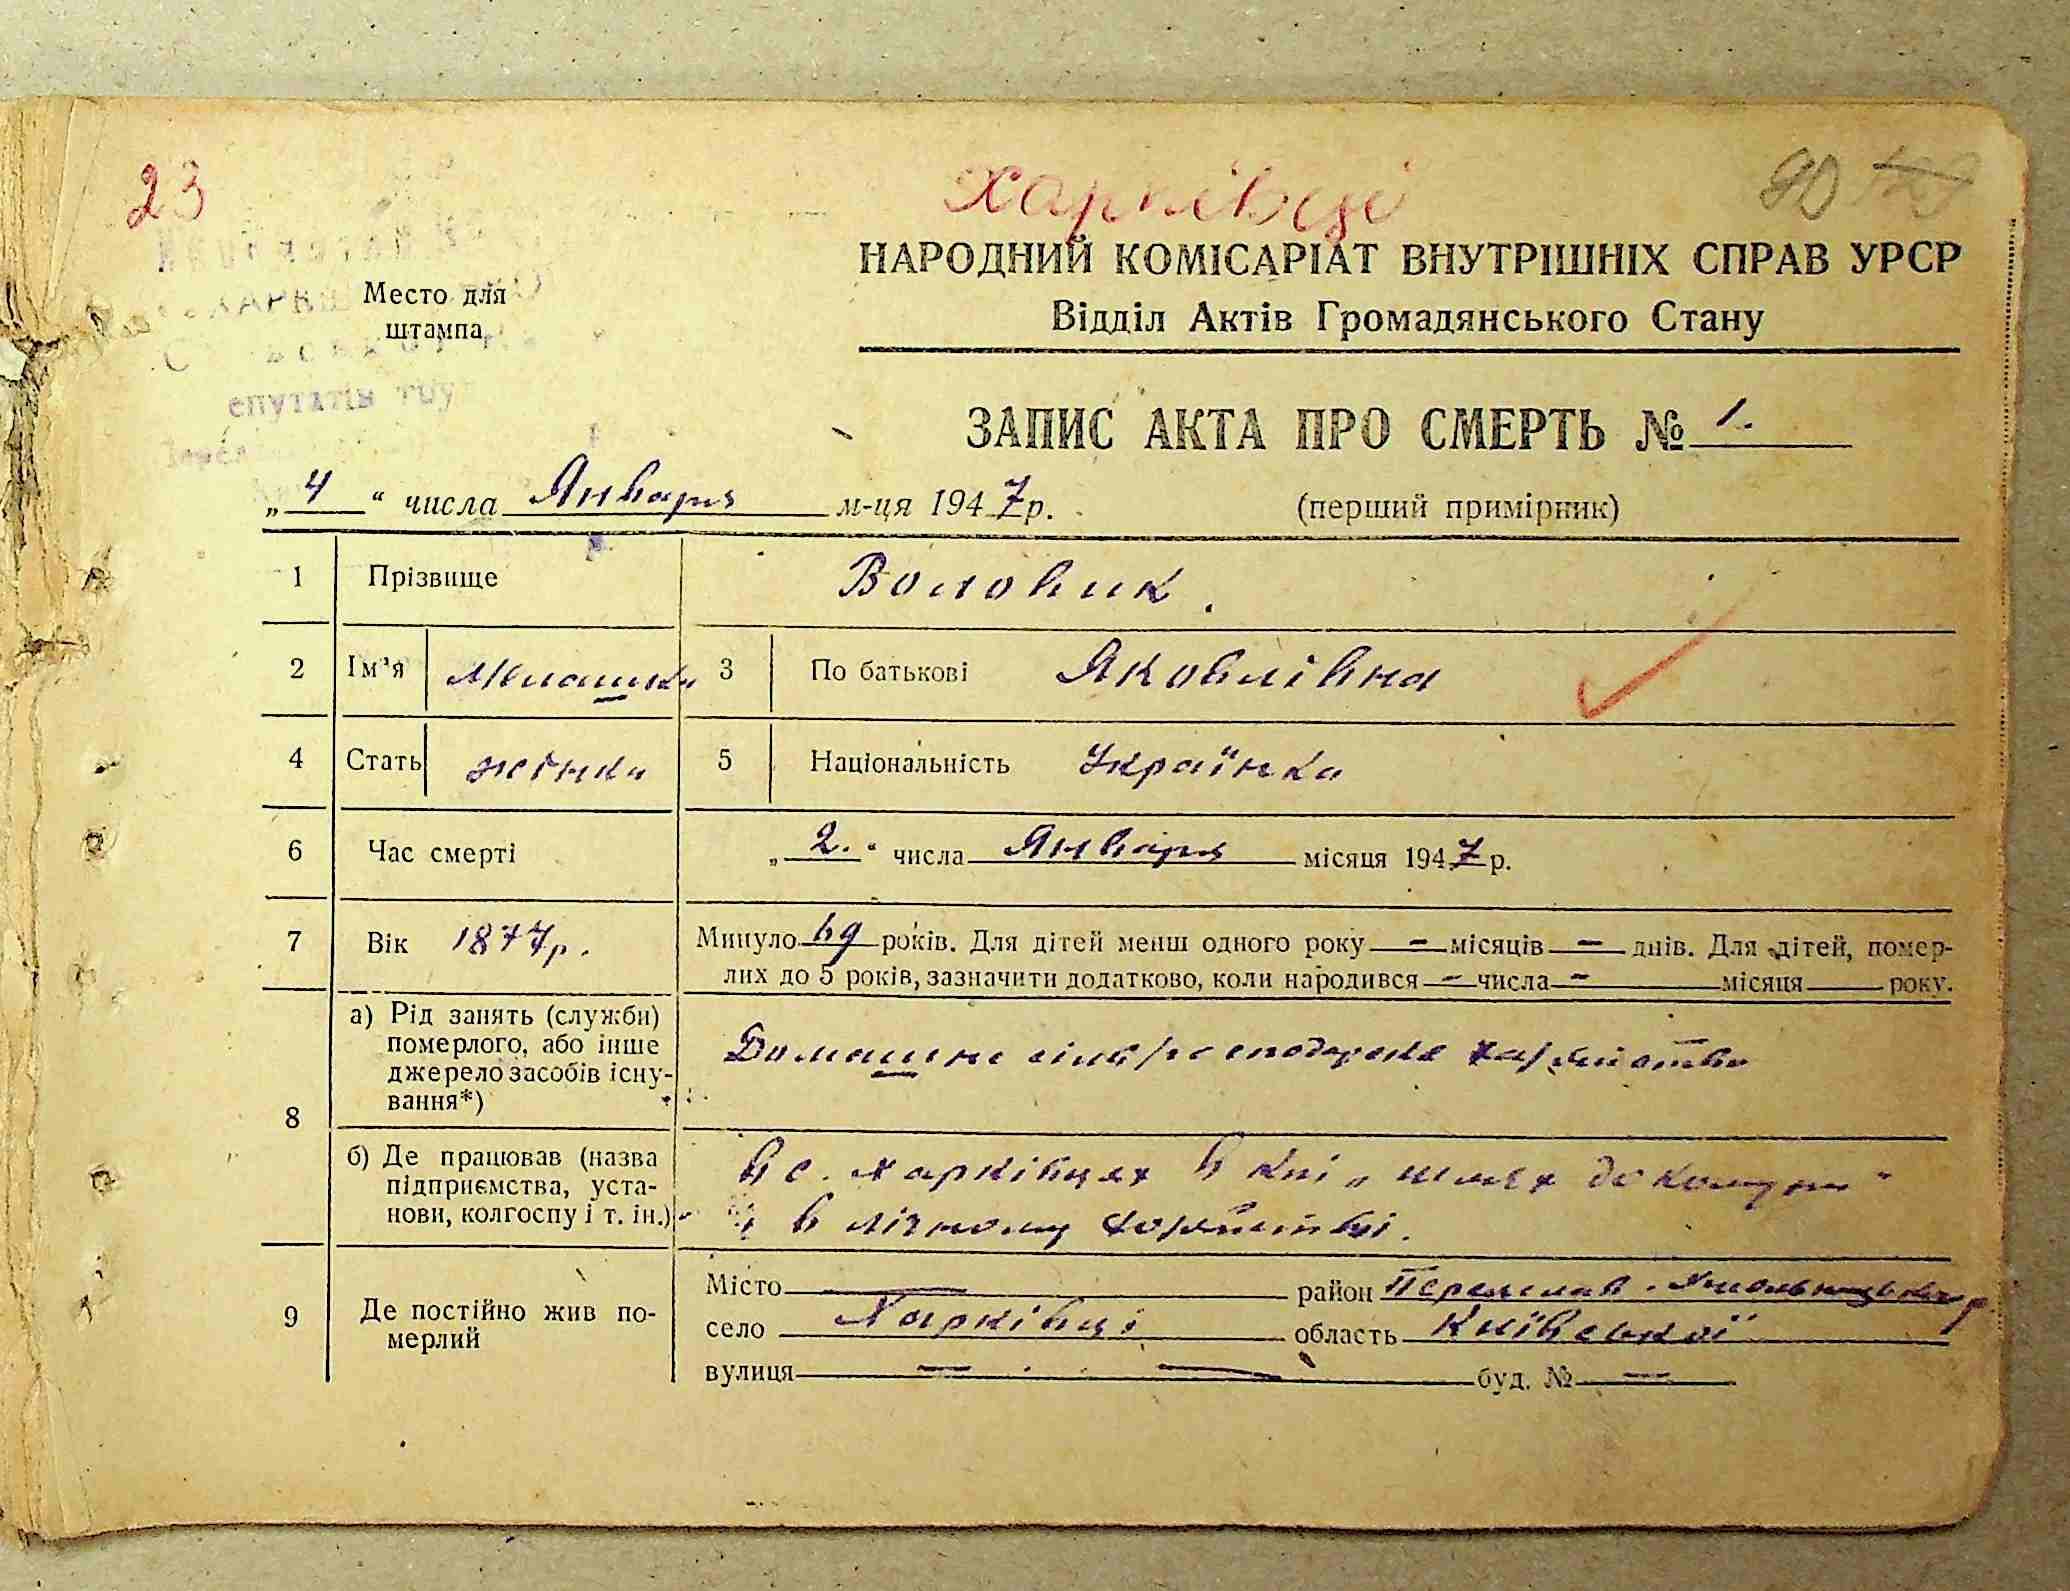 23
Харківці
90
НАРОДНИЙ КОМІСАРІАТ ВНУТРІШНІХ СПРАВ УРСР
Відділ Актів Громадянського Стану
Место для
штампа
епутатів тру
ЗАПИС АКТА ПРО СМЕРТЬ № 1.
„4“ числа Января м-ця 1947р.
(перший примірник)
1 Прізвище Воловик.
2 Ім'я Мелашка 3 По батькові Яковлівна
4 Стать жінка 5 Національність Українка
6 Час смерті „2.“ числа Января місяця 1947 р.
7 Вік 1877р. Минуло 69 років. Для дітей менш одного року — місяців — днів. Для дітей, помер-
лих до 5 років, зазначити додатково, коли народився — числа — місяця року.
8 а) Рід занять (служби)
померлого, або інше
джерело засобів існу-
вання*)
Домашнє
б) Де працював (назва
підприємства, уста-
нови, колгоспу і т. ін.)
в с. Харківцях в к-пі „шлях до комуни“
і в лічному хазяйстві.
9 Де постійно жив по-
мерлий
Місто — район Переяслав-Хмельницький р
село Харківці область Київської
вулиця — — буд. № —